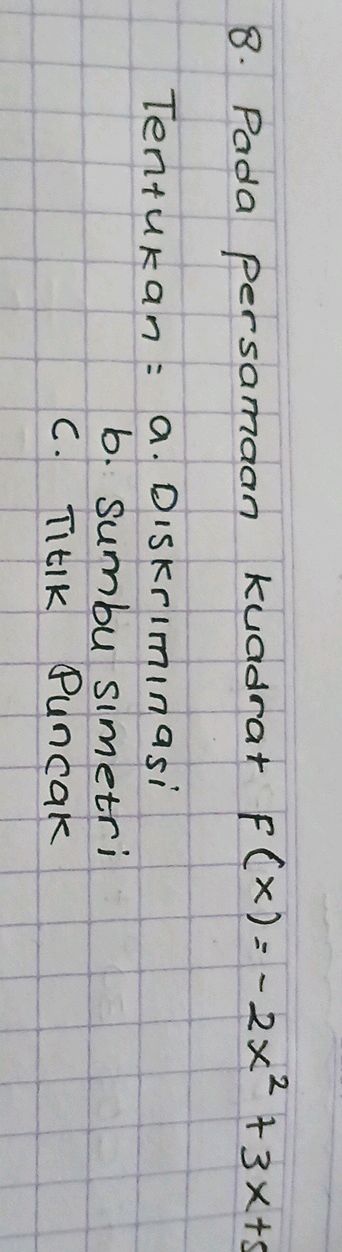 8. Pada persamaan kuadrat F(x) = -2x² + 3x +
Tentukan = a. Diskriminasi
b. Sumbu simetri
c. Titik Puncak